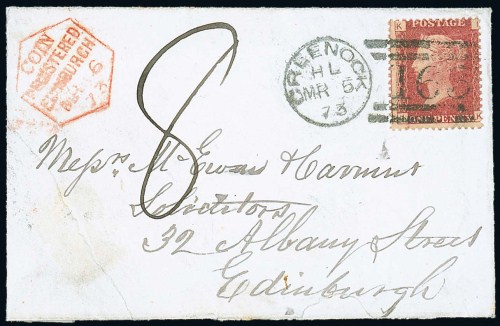 COIN
REGISTERED
EDINBURGH
6
73
8
GREENOCK
HL
MR 5
73
POSTAGE
K
163
ONE PENNY
K
Messrs McEwan & Carment
Solicitors
32 Albany Street
Edinburgh